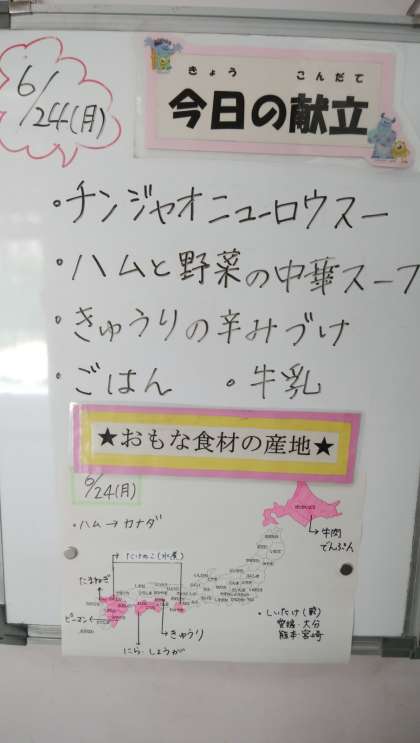 6/24(月)
きょう こんだて
今日の献立
・チンジャオニューロウスー
・ハムと野菜の中華スープ
・きゅうりの辛みづけ
・ごはん ・牛乳
★おもな食材の産地★
6/24(月)
・ハム→カナダ
牛肉
でんぷん
たけのこ(水煮)
たまねぎ
ピーマン
きゅうり
にら・しょうが
・しいたけ(乾)
愛媛・大分
熊本・宮崎